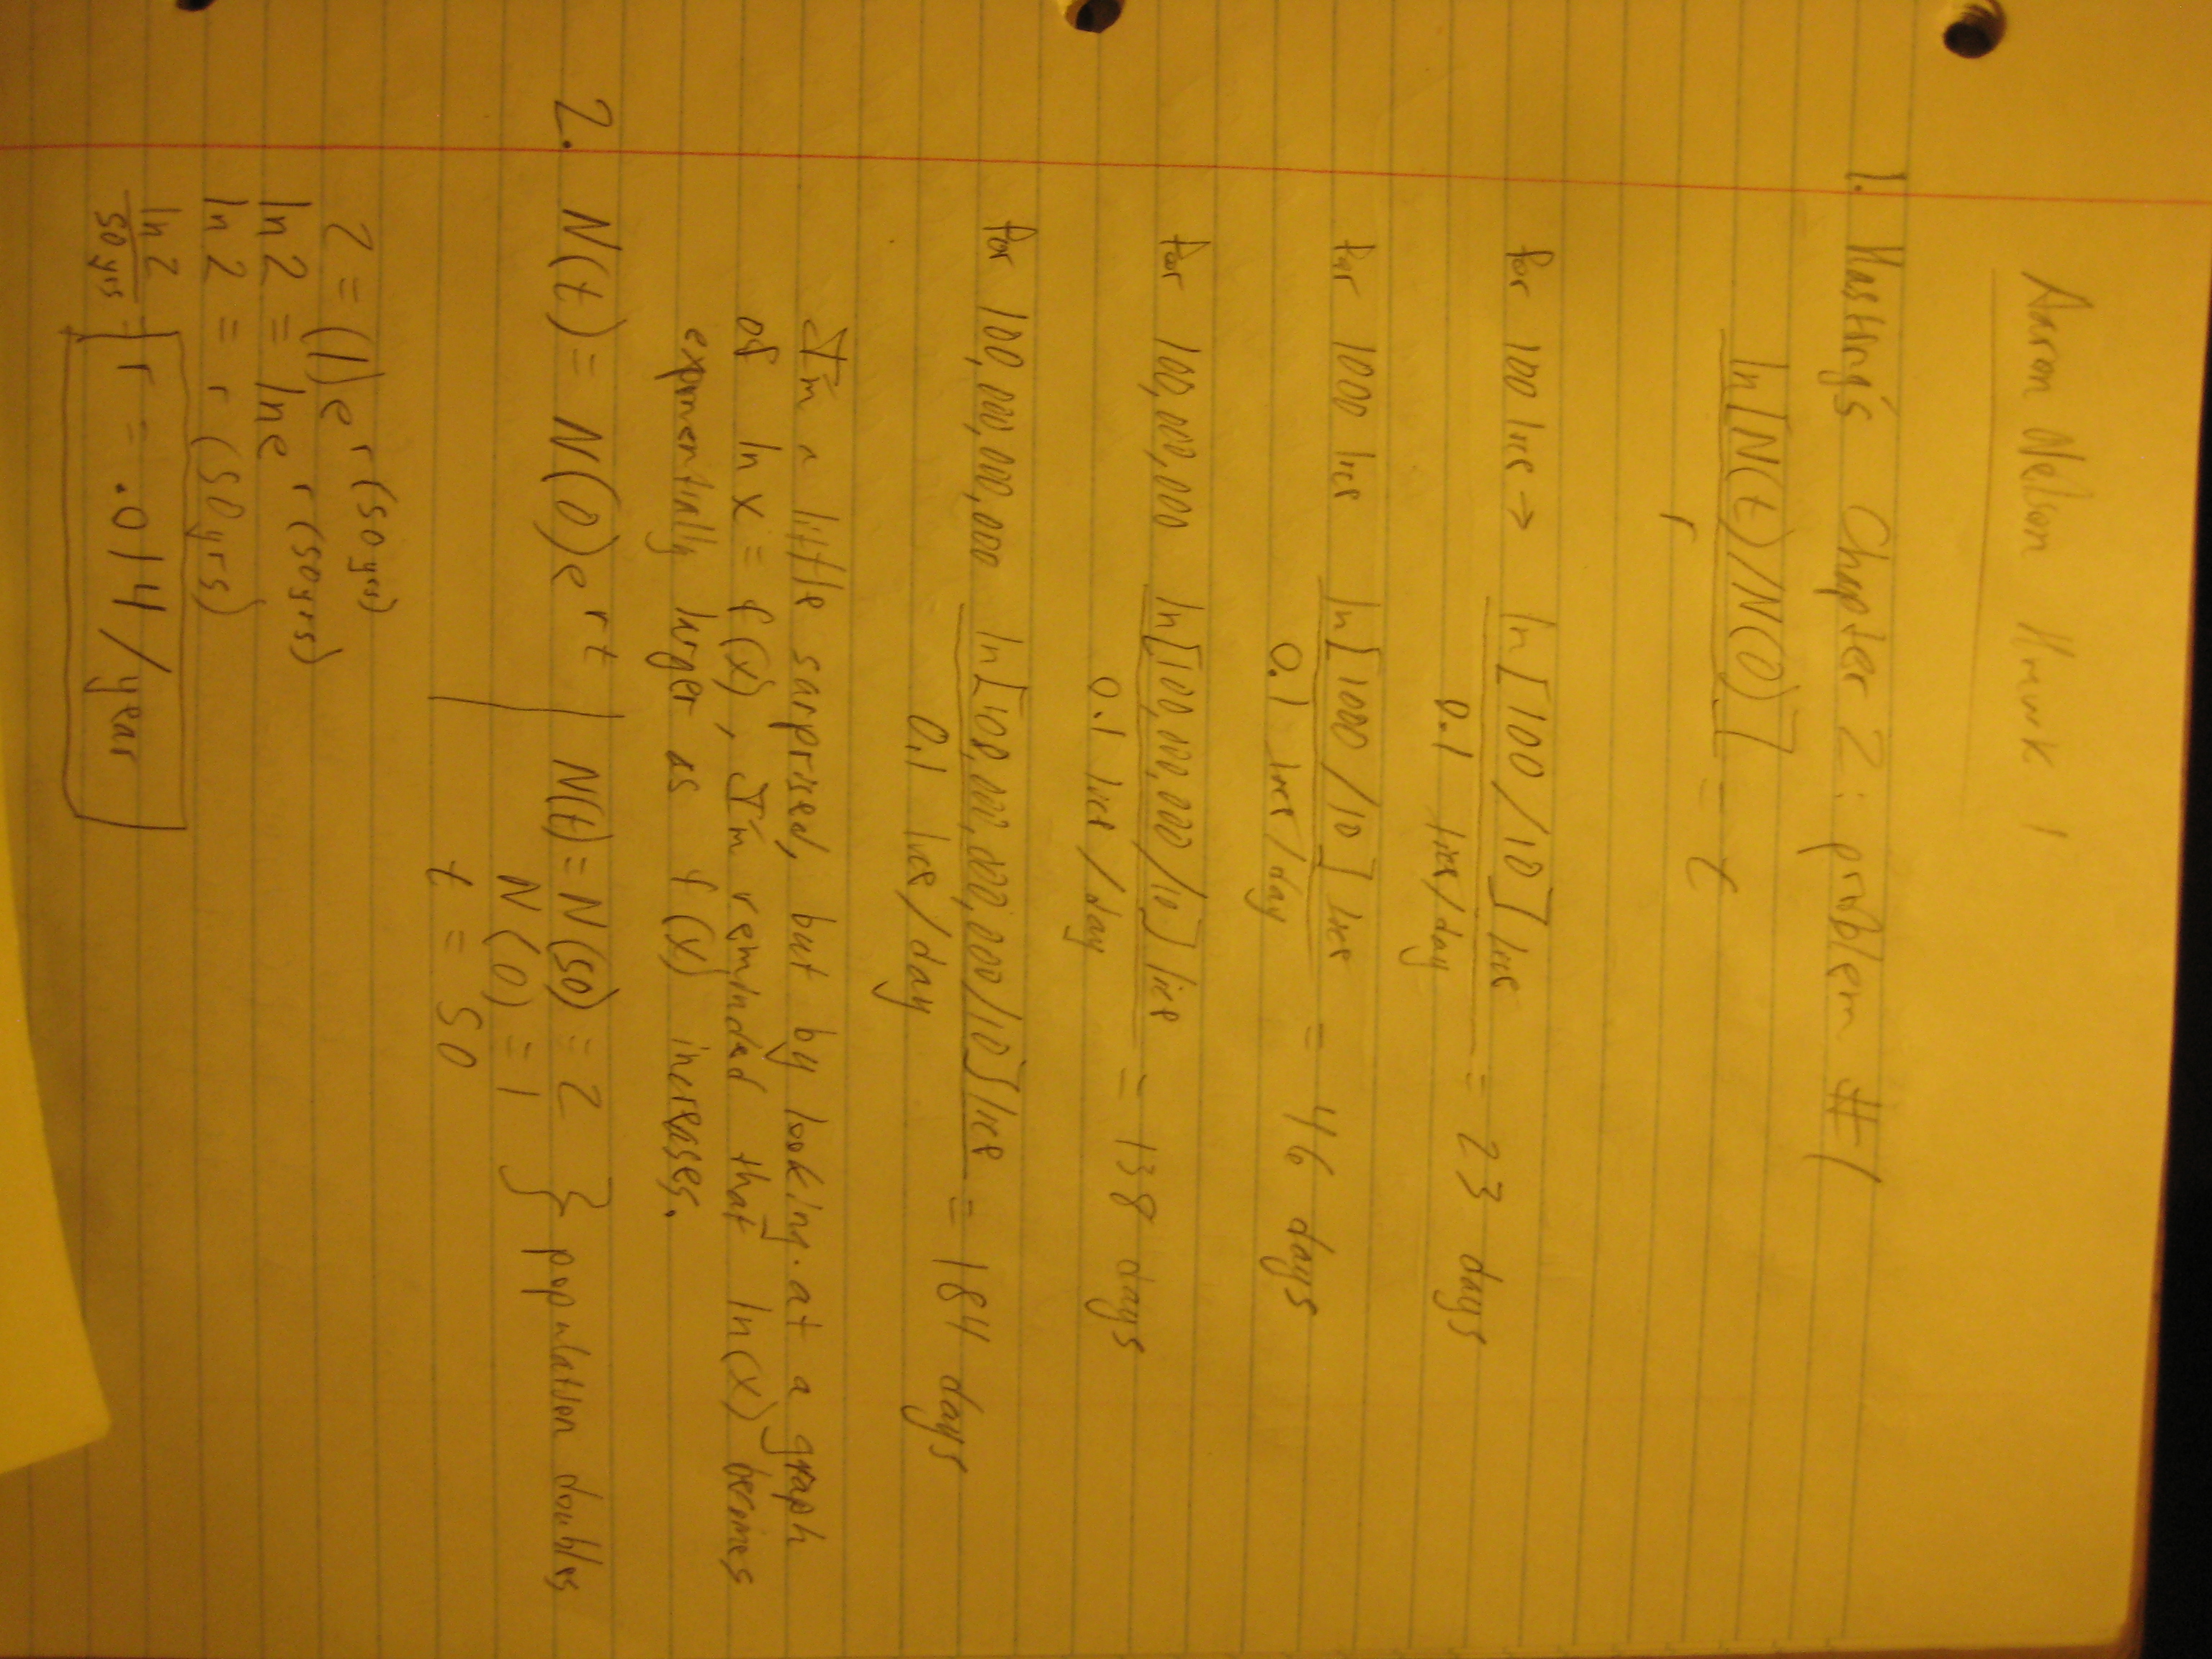 Aaron Nelson Hmwk 1
1. Hasting's Chapter 2: problem #1
ln[N(t)/N(0)]
r
= t
for 100 lice → ln[100/10] lice
0.1 lice/day
= 23 days
for 1000 lice ln[1000/10] lice
0.1 lice/day
= 46 days
for 100,000,000 ln[100,000,000/10] lice
0.1 lice/day
= 138 days
for 100,000,000,000 ln[100,000,000,000/10] lice
0.1 lice/day
= 184 days
I'm a little surprised, but by looking at a graph
of ln x = f(x), I'm reminded that ln(x) becomes
exponentially larger as f(x) increases.
2. N(t) = N(0)e^rt | N(t) = N(50) = 2 } population doubles
N(0) = 1
t = 50
2 = (1)e^r(50yrs)
ln 2 = ln e^r(50yrs)
ln 2 = r (50yrs)
ln 2
50 yrs
= r = .014/year